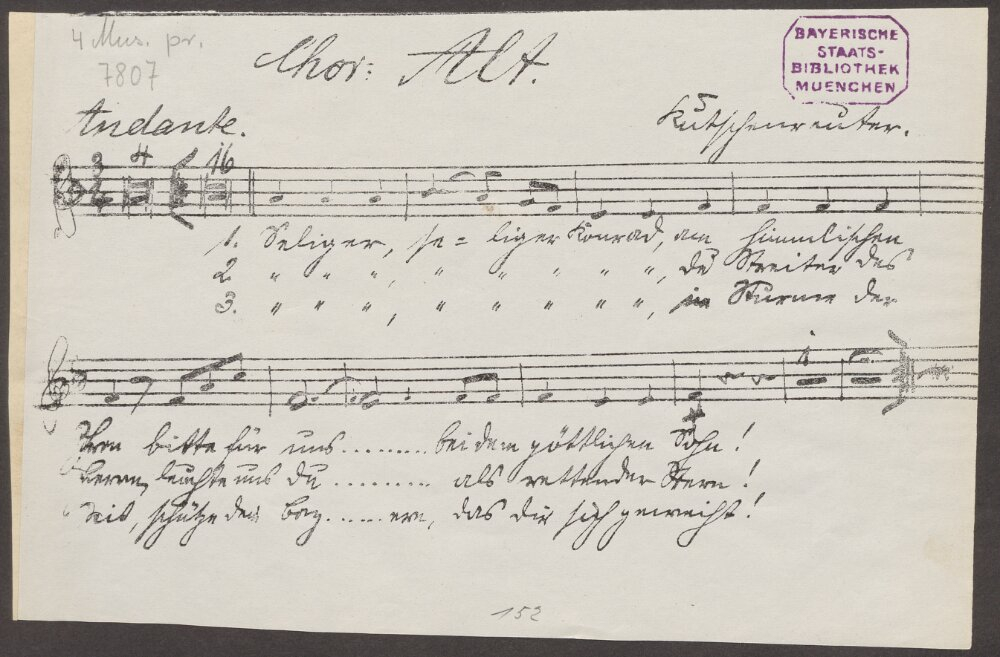 4 Mus. pr.
7807
Chor: Alt.
BAYERISCHE
STAATS-
BIBLIOTHEK
MUENCHEN
Andante.
Kutschenreuter.
4 16
1. Seliger, se = liger Konrad, am himmlischen
2. " " ", " " " " ", du Streiter des
3. " " ", " " " " ", im Sturme der
Thron bitte für uns ........ bei dem göttlichen Sohn!
Herrn, leuchte uns du ......... als rettender Stern!
Zeit, schütze den Bay ...... ern, das dir sich geweiht!
152